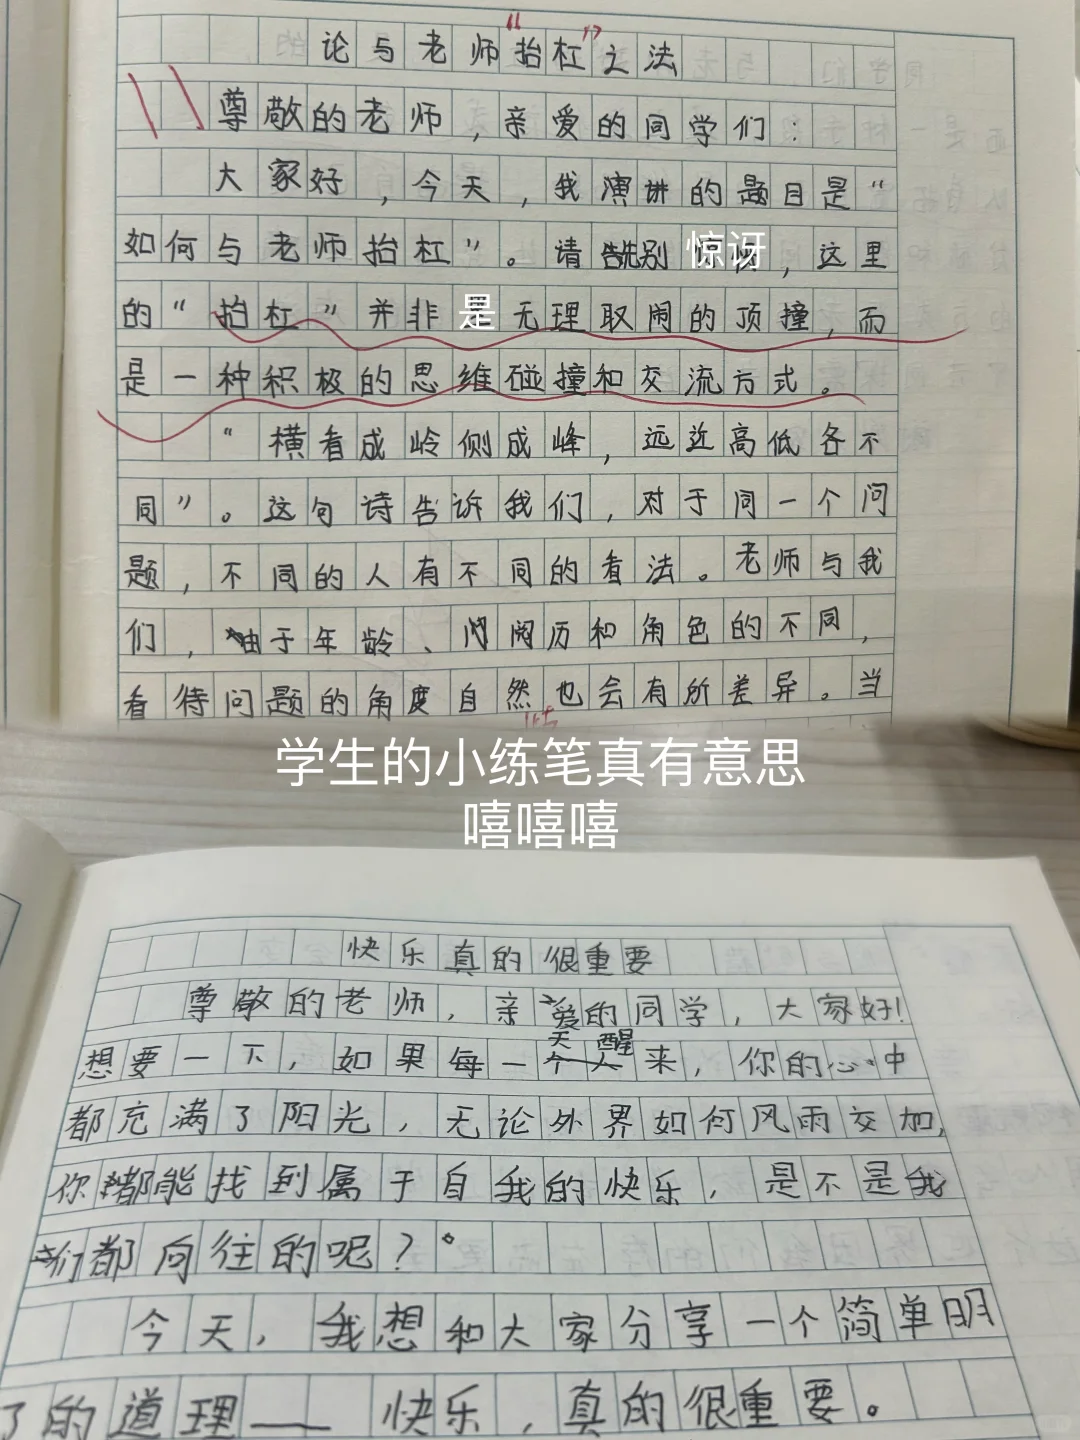 论与老师“抬杠”之法
尊敬的老师，亲爱的同学们：
大家好，今天，我演讲的题目是“
如何与老师抬杠”。请先别惊讶，这里
的“抬杠”并非是无理取闹的顶撞，而
是一种积极的思维碰撞和交流方式。
“横看成岭侧成峰，远近高低各不
同”。这句诗告诉我们，对于同一个问
题，不同的人有不同的看法。老师与我
们，由于年龄、阅历和角色的不同，
看待问题的角度自然也会有所差异。当
学生的小练笔真有意思
嘻嘻嘻
快乐真的很重要
尊敬的老师，亲爱的同学，大家好！
想要一下，如果每一天醒来，你的心中
都充满了阳光，无论外界如何风雨交加，
你都能找到属于自我的快乐，是不是我
们都向往的呢？
今天，我想和大家分享一个简单明
了的道理——快乐，真的很重要。